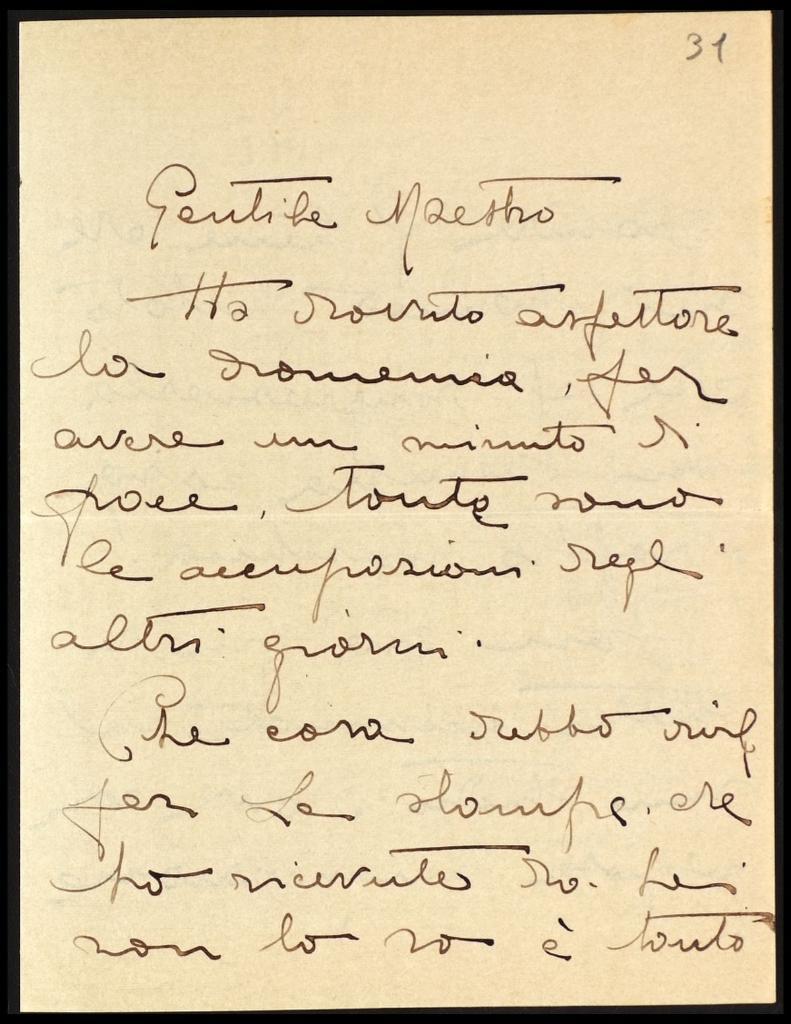 31
Gentile Maestro
Ho dovuto aspettare
la domenica, per
avere un minuto di
pace, tante sono
le occupazioni degli
altri giorni.
Che cosa debbo dirle
per Le stampe. che
ho ricevute da. Lei
non lo so è tanto